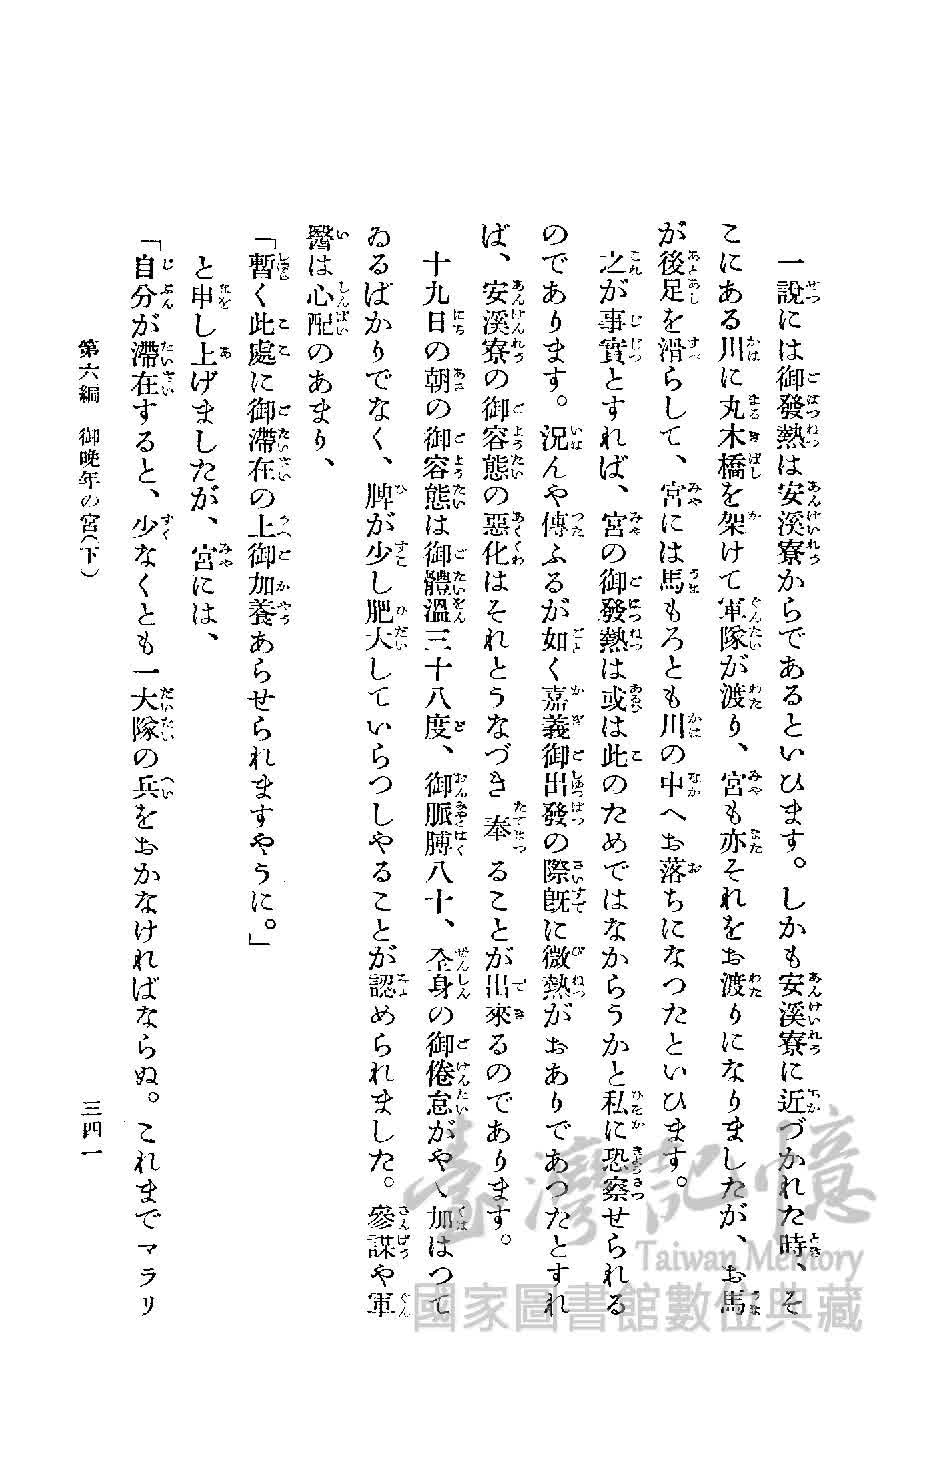 一說には御發熱は安溪寮からであるといひます。しかも安溪寮に近づかれた時、そ
こにある川に丸木橋を架けて軍隊が渡り、宮も亦それをお渡りになりましたが、お馬
が後足を滑らして、宮には馬もろとも川の中へお落ちになつたといひます。
之が事實とすれば、宮の御發熱は或は此のためではなからうかと私に恐察せられる
のであります。況んや傳ふるが如く嘉義御出發の際既に微熱がおありであつたとすれ
ば、安溪寮の御容態の惡化はそれとうなづき奉ることが出來るのであります。
十九日の朝の御容態は御體溫三十八度、御脈膊八十、全身の御倦怠がやゝ加はつて
ゐるばかりでなく、脾が少し肥大していらつしやることが認められました。參謀や軍
醫は心配のあまり、
「暫く此處に御滯在の上御加養あらせられますやうに。」
と申し上げましたが、宮には、
「自分が滯在すると、少なくとも一大隊の兵をおかなければならぬ。これまでマラリ
第六編 御晩年の宮(下)
三四一
臺灣記憶
Taiwan Memory
國家圖書館數位典藏